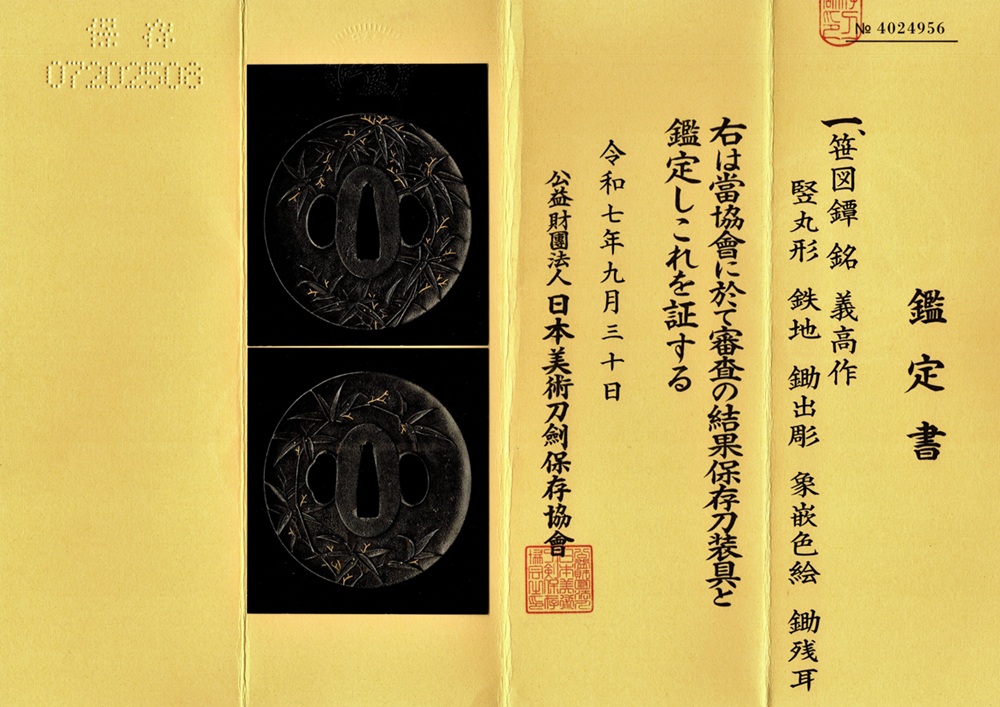 № 4024956
鑑定書
一、笹図鐔 銘 義高作
竪丸形 鉄地 鋤出彫 象嵌色絵 鋤残耳
右は當協會に於て審査の結果保存刀装具と
鑑定しこれを証する
令和七年九月三十日
公益財團法人 日本美術刀劍保存協會
保存
07202508